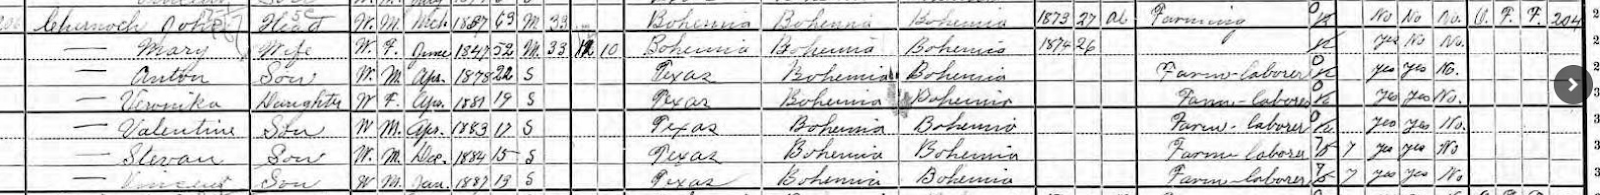 Chernoch John Head W. M. Mch. 1837 63 M 33 Bohemia Bohemia Bohemia 1873 27 al Farming 0 No No No. O. F. F 204 2
— Mary Wife W. F. June 1847 52 M 33 12 10 Bohemia Bohemia Bohemia 1874 26 yes No No. 2
— Anton Son W. M. Apr. 1878 22 S Texas Bohemia Bohemia Farm-laborer 0 yes yes No. 2
— Veronika Daughter W F. Apr. 1881 19 S Texas Bohemia Bohemia Farm-laborer 0 yes yes No. 3
— Valentine Son W M. Apr. 1883 17 S Texas Bohemia Bohemia Farm-laborer 0 yes yes No. 3
— Stevan Son W. M. Dec. 1884 15 S Texas Bohemia Bohemia Farm laborer 7 yes yes No 3
— Vincent Son W M. Jan. 1887 13 S Texas Bohemia Bohemia Farm-laborer 7 yes yes No. 3